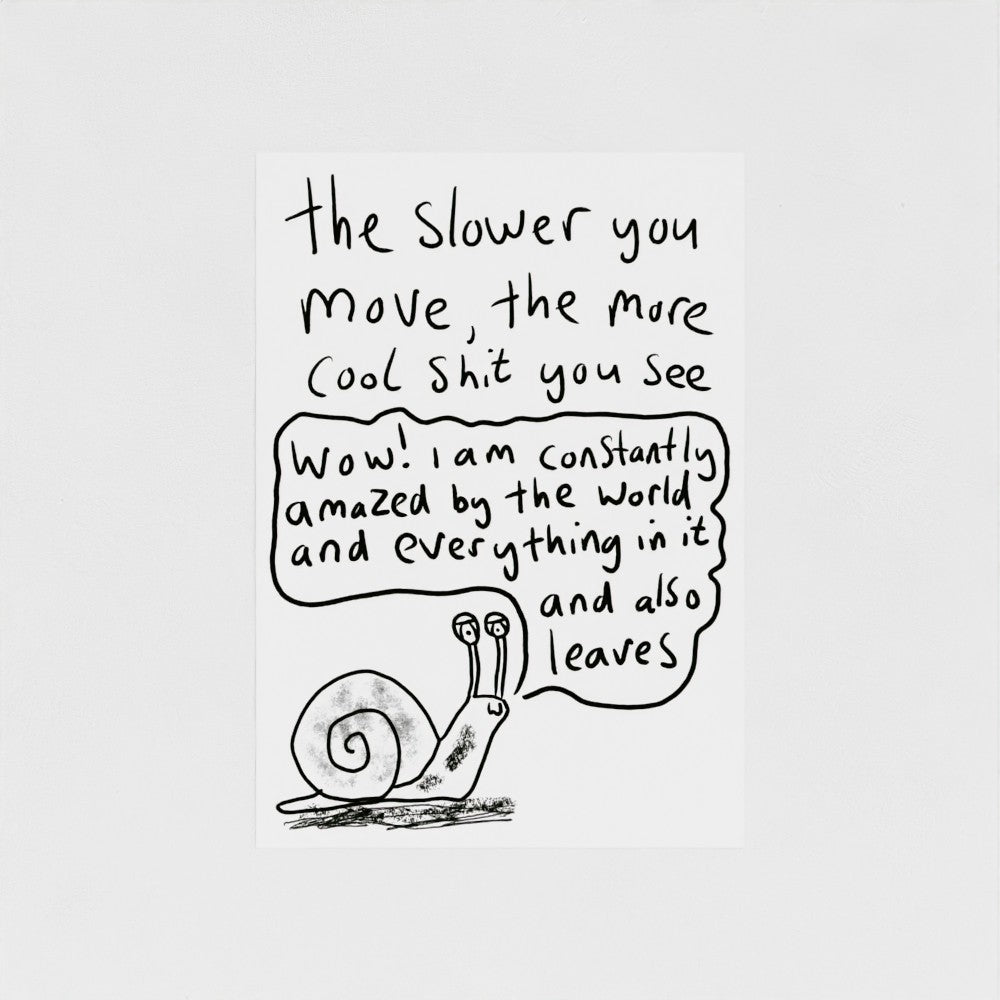 the slower you
move, the more
cool shit you see
Wow! i am constantly
amazed by the world
and everything in it
and also
leaves